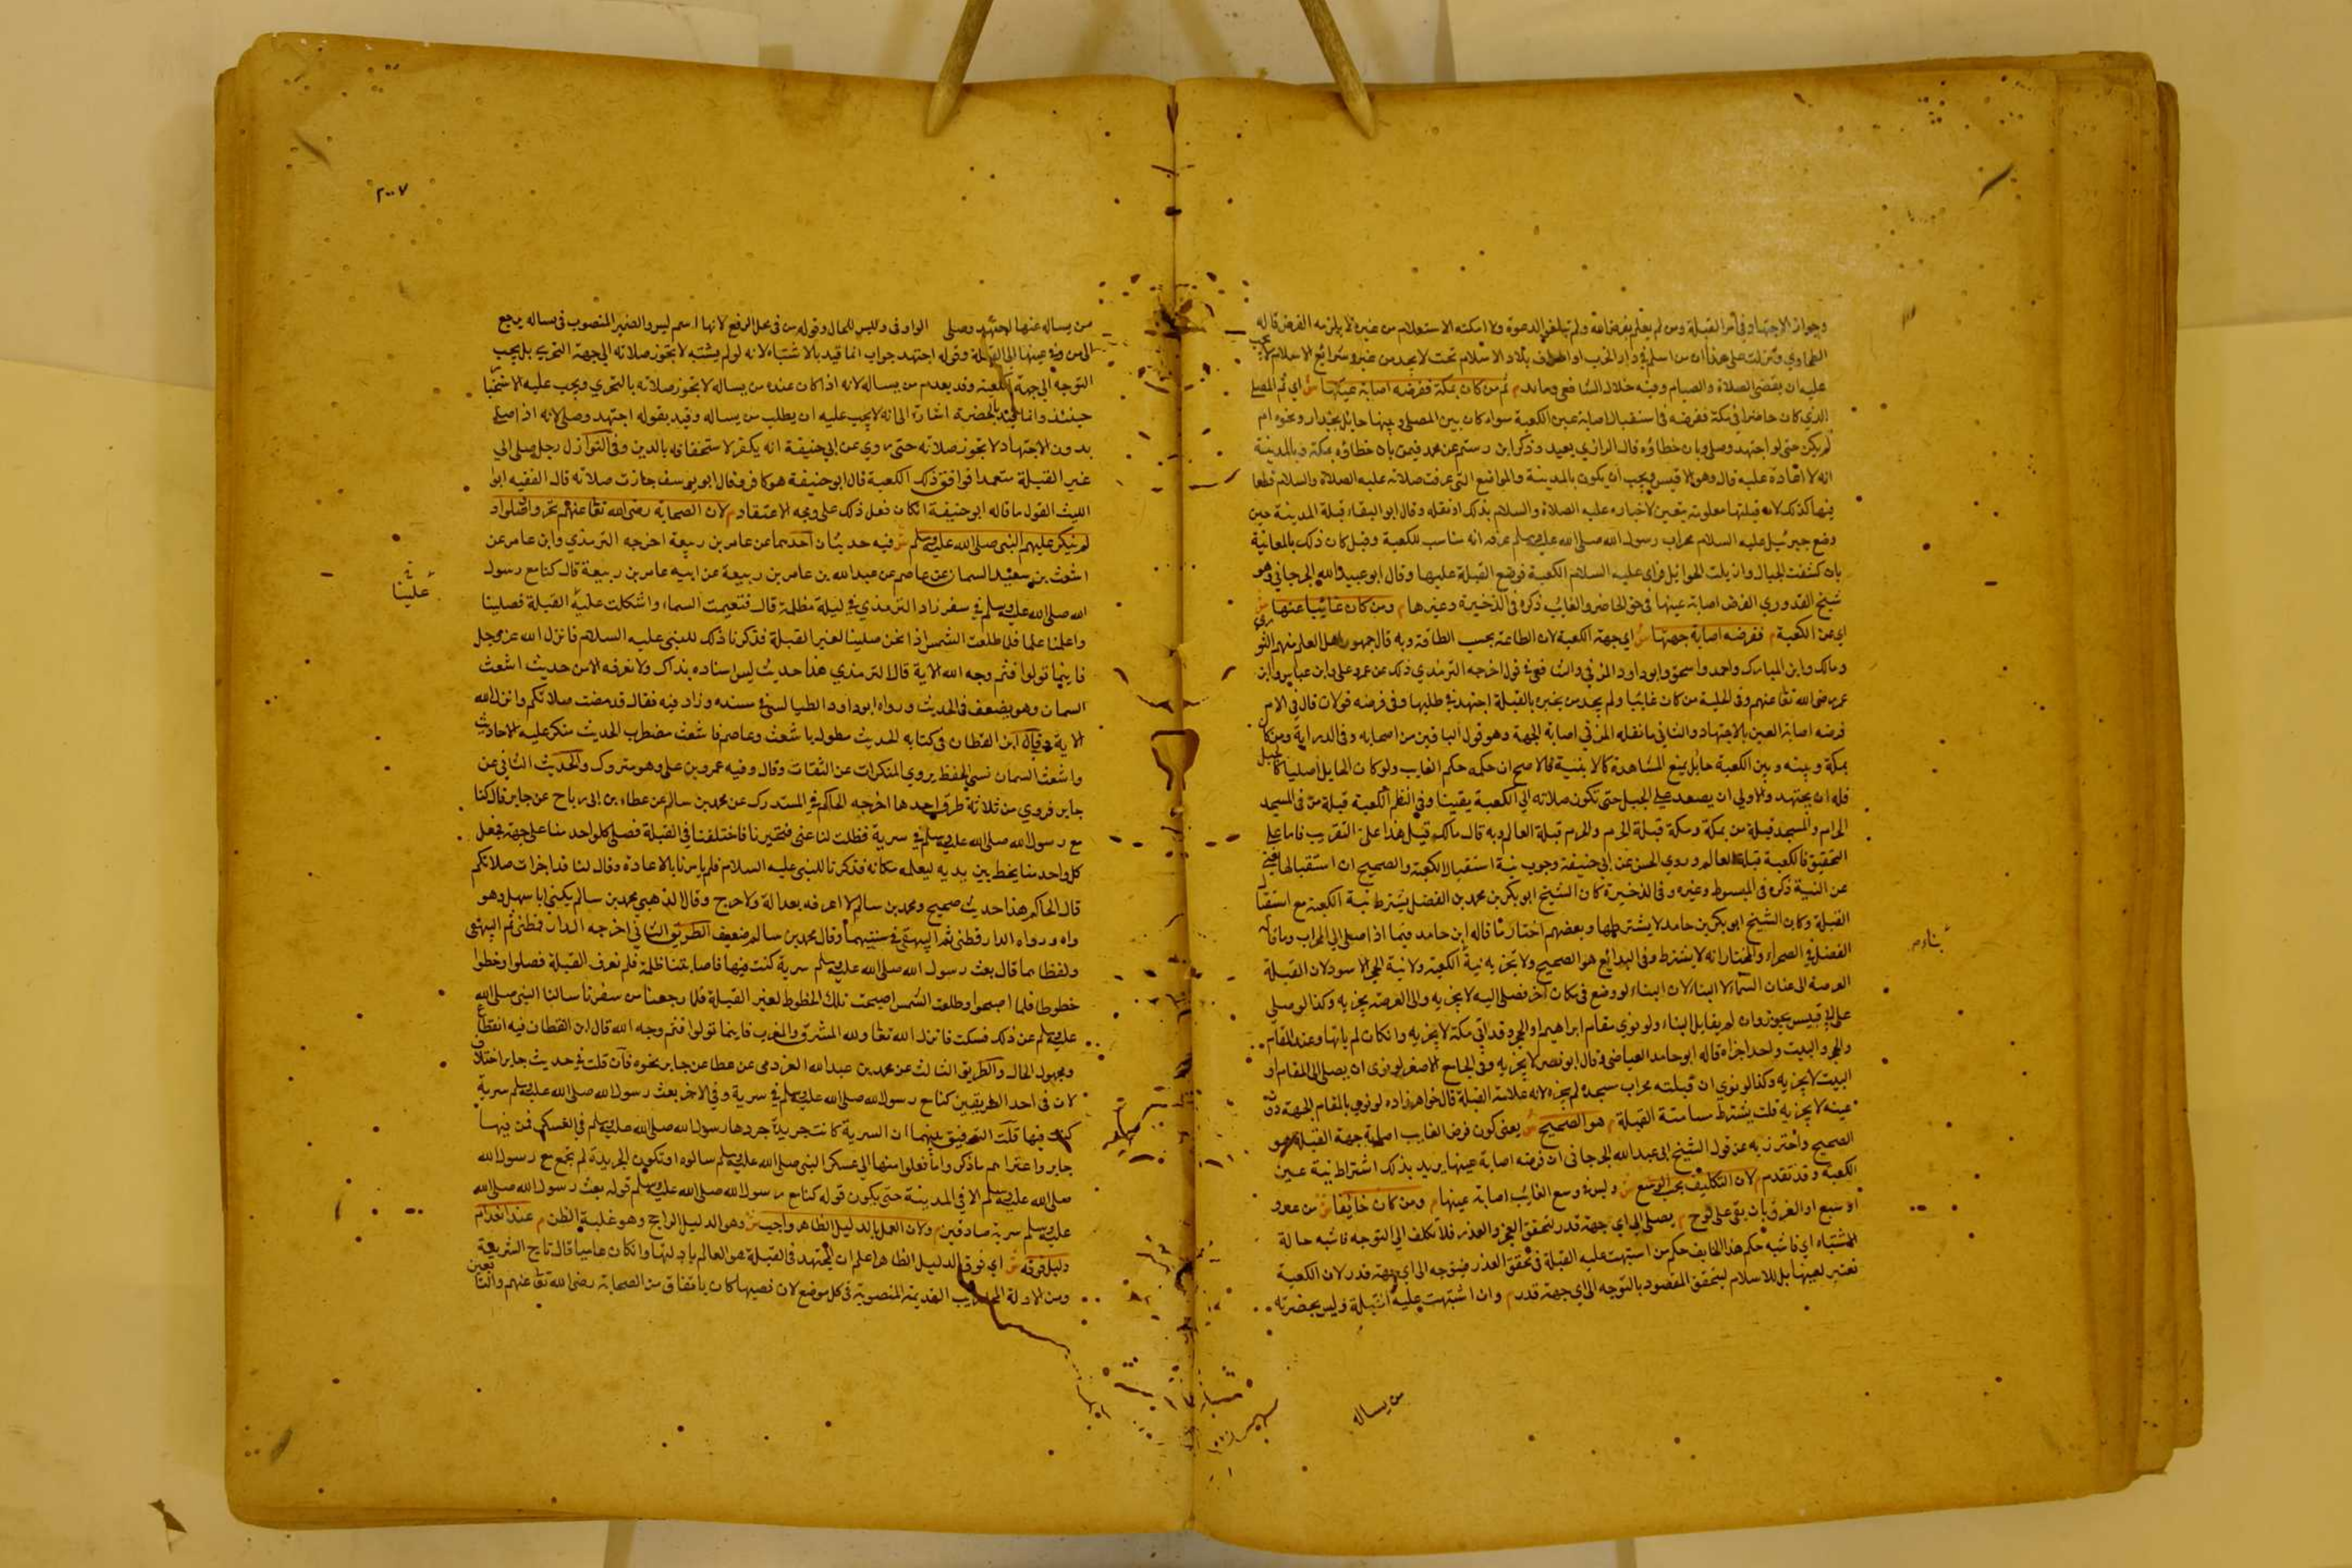 وجواز الاجتهاد في أمر القبلة ومن لم يعلم بفرض الله ولم تبلغه الدعوة ولا امكنه الاستعلام من غيره لا يلزمه الفرض قاله
الطحاوي على هذا ان من اسلم في دار الحرب او بلاد الاسلام لا يجد من شرائع الاسلام لا يجب
عليه ان يقضي الصلاة والصيام وفيه خلاف الشافعي ومالك م ثم من كان بمكة ففرضه اصابة عينها ش اي ثم المصلي
الذي كان حاضرا في مكة ففرضه في استقبال اصابة عين الكعبة سواء كان بين المصلي وبينها حايل بجدار ونحوه ام
لم يكن حتى لو اجتهد وصلى وبان خطاؤه قال الرازي يعيد وذكر ابن رستم عن محمد فيمن بان خطاؤه بمكة وبالمدينة
انه لا اعادة عليه قال وهو الاقيس ويجب ان يكون بالمدينة والمواضع التي عرفت صلاته عليه الصلاة والسلام قطعا
فيها كذلك لانه قبلتها معلومة بيقين لاخباره عليه الصلاة والسلام بذلك او نقله وقال ابو البقاء قبلة المدينة حين
وضع جبرئيل عليه السلام محراب رسول الله صلى الله عليه وسلم عرفه انه مناسب للكعبة وقيل كان ذلك بالمعاينة
بان كشفت الجبال وازيلت الحوايل فراى عليه السلام الكعبة فوضع القبلة عليها وقال ابو عبد الله الجرجاني وهو
شيخ القدوري الفرض اصابة عينها في حق الحاضر والغايب ذكره في الذخيرة وغيرها م ومن كان غائبا عنها ش
اي عن الكعبة م ففرضه اصابة جهتها ش اي جهة الكعبة لان الطاعة بحسب الطاقة وبه قال جمهور اهل العلم منهم الثوري
ومالك وابن المبارك واحمد واسحق وابو داود والمزني والشافعي في قول اخرجه الترمذي ذلك عن عمر وعلي وابن عباس وابن
عمر رضي الله تعا عنهم وفي الحلية من كان غائبا ولم يجد من يخبره بالقبلة اجتهد في طلبها وفي فرضه قولان قال في الام
فرضه اصابة العين بالاجتهاد والثاني ما نقله المزني اصابة الجهة وهو قول الباقين من اصحابه وفي الدراية ومن كان
بمكة وبينه وبين الكعبة حايل يمنع المشاهدة كالابنية فالاصح ان حكمه حكم الغايب ولو كان الحايل أصليا كالجبل
فله ان يجتهد والاولى ان يصعد على الجبل حتى تكون صلاته الى الكعبة يقينا وفي النظم الكعبة قبلة من في المسجد
الحرام والمسجد قبلة من بمكة ومكة قبلة الحرم والحرم قبلة العالم وبه قال مالك قيل هذا على التقريب فاما على
التحقيق فالكعبة قبلة العالم وروي الحسن عن ابي حنيفة وجوب نية استقبال الكعبة والصحيح ان استقبالها يغني
عن النية ذكره في المبسوط وغيره وفي الذخيرة كان الشيخ ابو بكر بن محمد بن الفضل يشترط نية الكعبة مع استقبال
القبلة وكان الشيخ ابو بكر بن حامد لا يشترطها وبعضهم اختار ما قاله ابن حامد فيما اذا صلى الى المحراب وما قاله
الفضل في الصحراء والمختار انه لا يشترط وفي البدائع هو الصحيح ولا تجزيه نية الكعبة ولا نية الحجر الاسود لان القبلة
العرصة الى عنان السماء لا البناء لان البناء لو وضع في مكان اخر فصلى اليه لا يجزيه والى العرصة يجزيه وكذا لو صلى
على ابي قبيس يجوز وان لم يقابل البناء ولو نوي مقام ابراهيم او الحجر وقد اتى مكة لا يجزيه وان كان لم ياتها وعنده المقام
والحجر والبيت واحد اجزاه قاله ابو حامد العياضي وقال ابو نصر لا يجزيه وفي الجامع الاصغر لو نوى ان يصلي الى المقام او
البيت لا يجزيه وكذا لو نوي ان قبلته محراب مسجده لم يجزه لانه علامة القبلة قال خواهرزاده لو نوي بالمقام الجهة دون
عينه لا يجزيه قلت يشترط مسامتة القبلة م هو الصحيح ش يعني كون فرض الغايب اصابة جهة القبلة هو
الصحيح واحترز به عن قول الشيخ ابي عبد الله الجرجاني ان فرضه اصابة عينها يريد بذلك اشتراط نية عين
الكعبة وقد تقدم م لان التكليف بحسب الوسع ش وليس في وسع الغائب اصابة عينها م ومن كان خايفا ش من عدو
او سبع او الغرق بان بقي على لوح م يصلي الى اي جهة قدر لتحقق العجز والعذر فلا تكلف الى التوجه فاشبه حالة
الاشتباه اي فاشبه حكم هذا الخايف حكم من اشتبهت عليه القبلة في تحقق العذر فيتوجه الى اي جهة قدر لان الكعبة
تعتبر لعينها بل للاسلام ليتحقق المقصود بالتوجه الى اي جهة قدر م وان اشتبهت عليه القبلة وليس بحضرته
بناء م
من يساله
٢٠٠٧
من يساله عنها اجتهد وصلى الواو في وليس للحال وقوله من في محل الرفع لانها اسم ليس والضمير المنصوب في يساله يرجع
الى من وفي عنها الى القبلة وقوله اجتهد جواب انما قيد بالاشتباه لانه لو لم يشتبه لا تجوز صلاته الى جهة التحري بل يجب
التوجه الى جهة الكعبة وقد بعدم من يساله لانه اذا كان عنده من يساله لا تجوز صلاته بالتحري ويجب عليه الاستخبار
حينئذ وانما قيد بالحضرة اشارة الى انه لا يجب عليه ان يطلب من يساله وقيد بقوله اجتهد وصلى لانه اذا صلى
بدون الاجتهاد لا تجوز صلاته حتى روي عن ابي حنيفة انه يكفر لاستخفافه بالدين وفي النوازل رجل صلى الى
غير القبلة متعمدا فوافق ذلك الكعبة قال ابو حنيفة هو كافر وقال ابو يوسف جازت صلاته قال الفقيه ابوا
الليث القول ما قاله ابو حنيفة ان كان فعل ذلك على وجه الاعتقاد م لان الصحابة رضى الله تعا عنهم تحروا وصلوا و
لم ينكر عليهم النبي صلى الله عليه وسلم ش فيه حديثان احدهما عن عامر بن ربيعة اخرجه الترمذي وابن عامر عن
اشعث بن سعيد السمان عن عاصم عن عبد الله بن عامر بن ربيعة عن ابيه عامر بن ربيعة قال كنا مع رسول
الله صلى الله عليه وسلم في سفر زاد الترمذي في ليلة مظلمة قال فتغيمت السماء واشكلت علينا القبلة فصلينا
واعلمنا علما فلما طلعت الشمس اذا نحن صلينا لغير القبلة فذكرنا ذلك للنبي عليه السلام فانزل الله عز وجل
فاينما تولوا فثم وجه الله الاية قال الترمذي هذا حديث ليس اسناده بذاك ولا نعرفه الا من حديث اشعث
السمان وهو يضعف في الحديث ورواه ابو داود الطيالسي في مسنده وزاد فيه فقال قد مضت صلاتكم وانزل الله
الاية وقال ابن القطان في كتابه الحديث معلول باشعث وعاصم فاشعث مضطرب الحديث منكر عليه الاحاديث
واشعث السمان سيئ الحفظ يروي المنكرات عن الثقات وقال وفيه عمرو بن علي وهو متروك والحديث الثاني عن
جابر فروي من ثلاثة طرق احدها اخرجه الحاكم في المستدرك عن محمد بن سالم عن عطاء بن ابي رباح عن جابر قال كنا
مع رسول الله صلى الله عليه وسلم في سرية فتحيرنا فاختلفنا في القبلة فصلى كل واحد منا على جهة فجعل
كل واحد منا يخط بين يديه ليعلم مكانه فذكرنا للنبي عليه السلام فلم يامرنا بالاعادة وقال لنا قد اجزات صلاتكم
قال الحاكم هذا حديث صحيح ومحمد بن سالم لا اعرفه بعدالة ولا جرح وقال الذهبي محمد بن سالم يكنى ابا سهل وهو
واه ورواه الدارقطني ثم البيهقي في سننيهما وقال محمد بن سالم ضعيف الطريق الثاني اخرجه الدارقطني ثم البيهقي
ولفظهما قال بعث رسول الله صلى الله عليه وسلم سرية كنت فيها فاصابتنا ظلمة فلم نعرف القبلة فصلوا وخطوا
خطوطا فلما اصبحوا وطلعت الشمس اصبحت تلك الخطوط لغير القبلة فلما رجعنا من سفرنا سالنا النبي صلى الله
عليه وسلم عن ذلك فسكت فانزل الله تعا ولله المشرق والمغرب فاينما تولوا فثم وجه الله قال ابن القطان فيه انقطاع
ومجهول الحال والطريق الثالث عن محمد بن عبد الله العرزمي عن عطا عن جابر نحوه فان قلت في حديث جابر اختلاف
لان في احد الطريقين كنا مع رسول الله صلى الله عليه وسلم في سرية وفي الاخر بعث رسول الله صلى الله عليه وسلم سرية
كنت فيها قلت التوفيق بينهما ان السرية كانت جريدة جردها رسول الله صلى الله عليه وسلم في العسكر فمن فيها
جابر واعتراهم ما ذكر واما قفلوا منها الى عسكر النبي صلى الله عليه وسلم سالوه او تكون الجريدة لم تجتمع مع رسول الله
صلى الله عليه وسلم الا في المدينة حتى يكون قوله كنا مع رسول الله صلى الله عليه وسلم قوله بعث رسول الله صلى الله
عليه وسلم سرية صادقين م ولان العمل بالدليل الظاهر واجب ش وهو الدليل الراجح وهو غلبة الظن م عند انعدام
دليل فوقه ش اي فوق الدليل الظاهر اعلم ان المجتهد في القبلة هو العالم بادلتها وان كان عاميا قال تاج الشريعة
ومن الادلة المحاريب القديمة المنصوبة في كل موضع لان نصبها كان باتفاق من الصحابة رضى الله تعا عنهم والتابعين
علينا